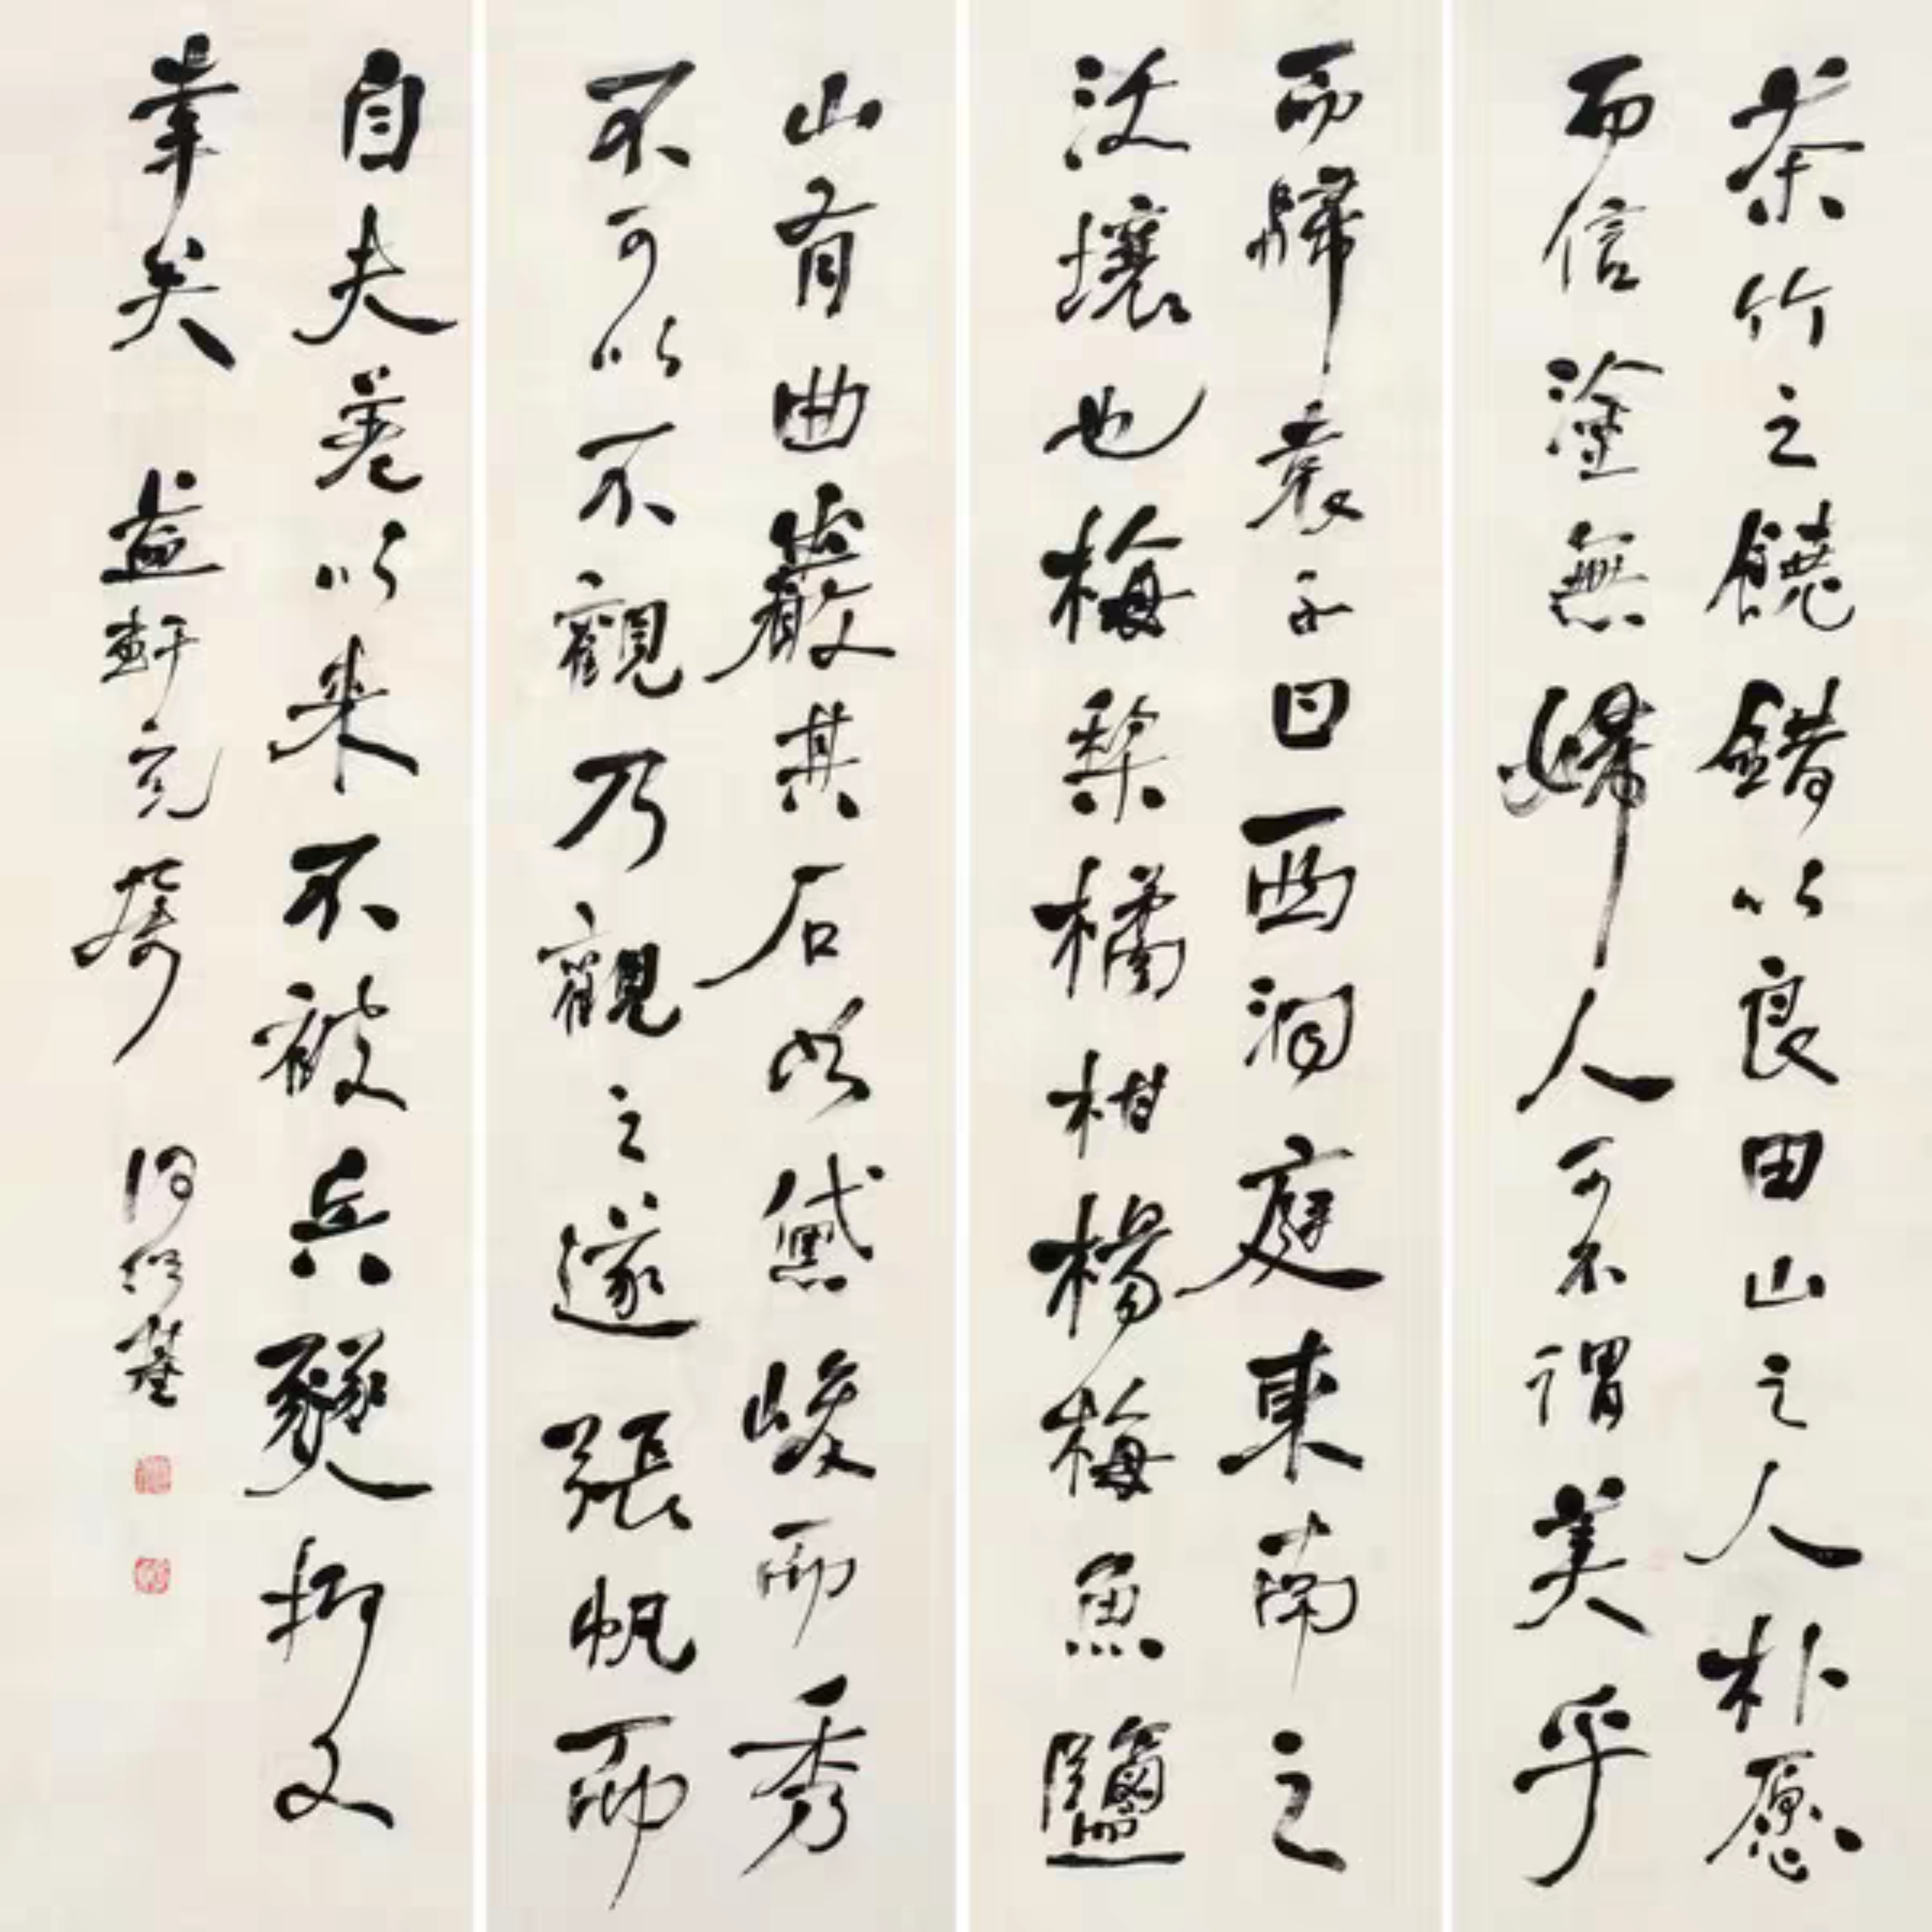 茶竹之饒錯以良田山之人朴愿
而信塗無婦人可不謂美乎
而歸袁子曰西洞庭東南之
沃壤也梅梨橘柑楊梅魚鹽
山有曲巖其石如黛峻而秀
不可以不觀乃觀之遂張帆而
自夫差以來不被兵燹抑又
幸矣 益軒 何紹基